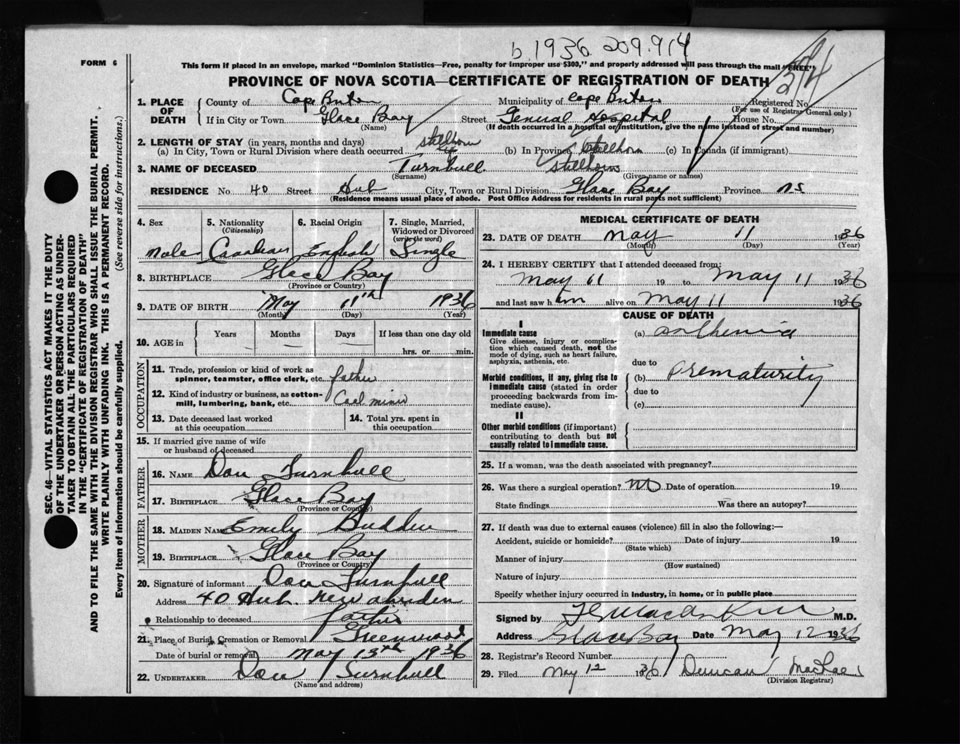 b. 1936. 209.914
FORM 6
This form if placed in an envelope, marked "Dominion Statistics—Free, penalty for improper use $300," and properly addressed will pass through the mail "FREE"
PROVINCE OF NOVA SCOTIA—CERTIFICATE OF REGISTRATION OF DEATH
1. PLACE OF DEATH
County of Cape Breton Municipality of Cape Breton Registered No.
(For use of Registrar General only)
If in City or Town Glace Bay Street General Hospital House No.
(Name) (If death occurred in a hospital or institution, give the name instead of street and number)
2. LENGTH OF STAY (in years, months and days)
(a) In City, Town or Rural Division where death occurred stillborn (b) In Province Stillborn (c) In Canada (if immigrant)
3. NAME OF DECEASED Turnbull stillborn
(Surname) (Given name or names)
RESIDENCE No. 40 Street Hub City, Town or Rural Division Glace Bay Province NS
(Residence means usual place of abode. Post Office Address for residents in rural parts not sufficient)
4. Sex Male
5. Nationality (Citizenship) Canadian
6. Racial Origin English
7. Single, Married, Widowed or Divorced (write the word) Single
8. BIRTHPLACE Glace Bay
(Province or Country)
9. DATE OF BIRTH May 11th 1936
(Month) (Day) (Year)
10. AGE in Years Months Days If less than one day old
hrs. or min.
OCCUPATION
11. Trade, profession or kind of work as spinner, teamster, office clerk, etc. father
12. Kind of industry or business, as cotton-mill, lumbering, bank, etc. Coal miner
13. Date deceased last worked at this occupation
14. Total yrs. spent in this occupation
15. If married give name of wife or husband of deceased
FATHER
16. NAME Dan Turnbull
17. BIRTHPLACE Glace Bay
(Province or Country)
MOTHER
18. MAIDEN NAME Emily Budden
19. BIRTHPLACE Glace Bay
(Province or Country)
20. Signature of informant Dan Turnbull
Address 40 Hub. New Aberdeen
Relationship to deceased father
21. Place of Burial, Cremation or Removal Greenwood
Date of burial or removal May 13th 1936
22. UNDERTAKER Dan Turnbull
(Name and address)
MEDICAL CERTIFICATE OF DEATH
23. DATE OF DEATH May 11 1936
(Month) (Day) (Year)
24. I HEREBY CERTIFY that I attended deceased from:
May 11 19 to May 11 1936
and last saw him alive on May 11 1936
CAUSE OF DEATH
I
Immediate cause
Give disease, injury or complication which caused death, not the mode of dying, such as heart failure, asphyxia, asthenia, etc.
(a) asthenia
due to
Morbid conditions, if any, giving rise to immediate cause (stated in order proceeding backwards from immediate cause).
(b) Prematurity
due to
(c)
II
Other morbid conditions (if important) contributing to death but not causally related to immediate cause.
25. If a woman, was the death associated with pregnancy?
26. Was there a surgical operation? no Date of operation 19
State findings Was there an autopsy?
27. If death was due to external causes (violence) fill in also the following:—
Accident, suicide or homicide? Date of injury 19
(State which)
Manner of injury
(How sustained)
Nature of injury
Specify whether injury occurred in industry, in home, or in public place
Signed by M.D.
Address Glace Bay Date May 12 1936
28. Registrar's Record Number
29. Filed May 12 1936 Duncan MacRae
(Division Registrar)
SEC. 46—VITAL STATISTICS ACT MAKES IT THE DUTY
OF THE UNDERTAKER OR PERSON ACTING AS UNDERTAKER TO OBTAIN ALL THE PARTICULARS REQUIRED
IN THE "CERTIFICATE OF REGISTRATION OF DEATH"
AND TO FILE THE SAME WITH THE DIVISION REGISTRAR WHO SHALL ISSUE THE BURIAL PERMIT.
WRITE PLAINLY WITH UNFADING INK. THIS IS A PERMANENT RECORD.
Every item of information should be carefully supplied. (See reverse side for instructions.)